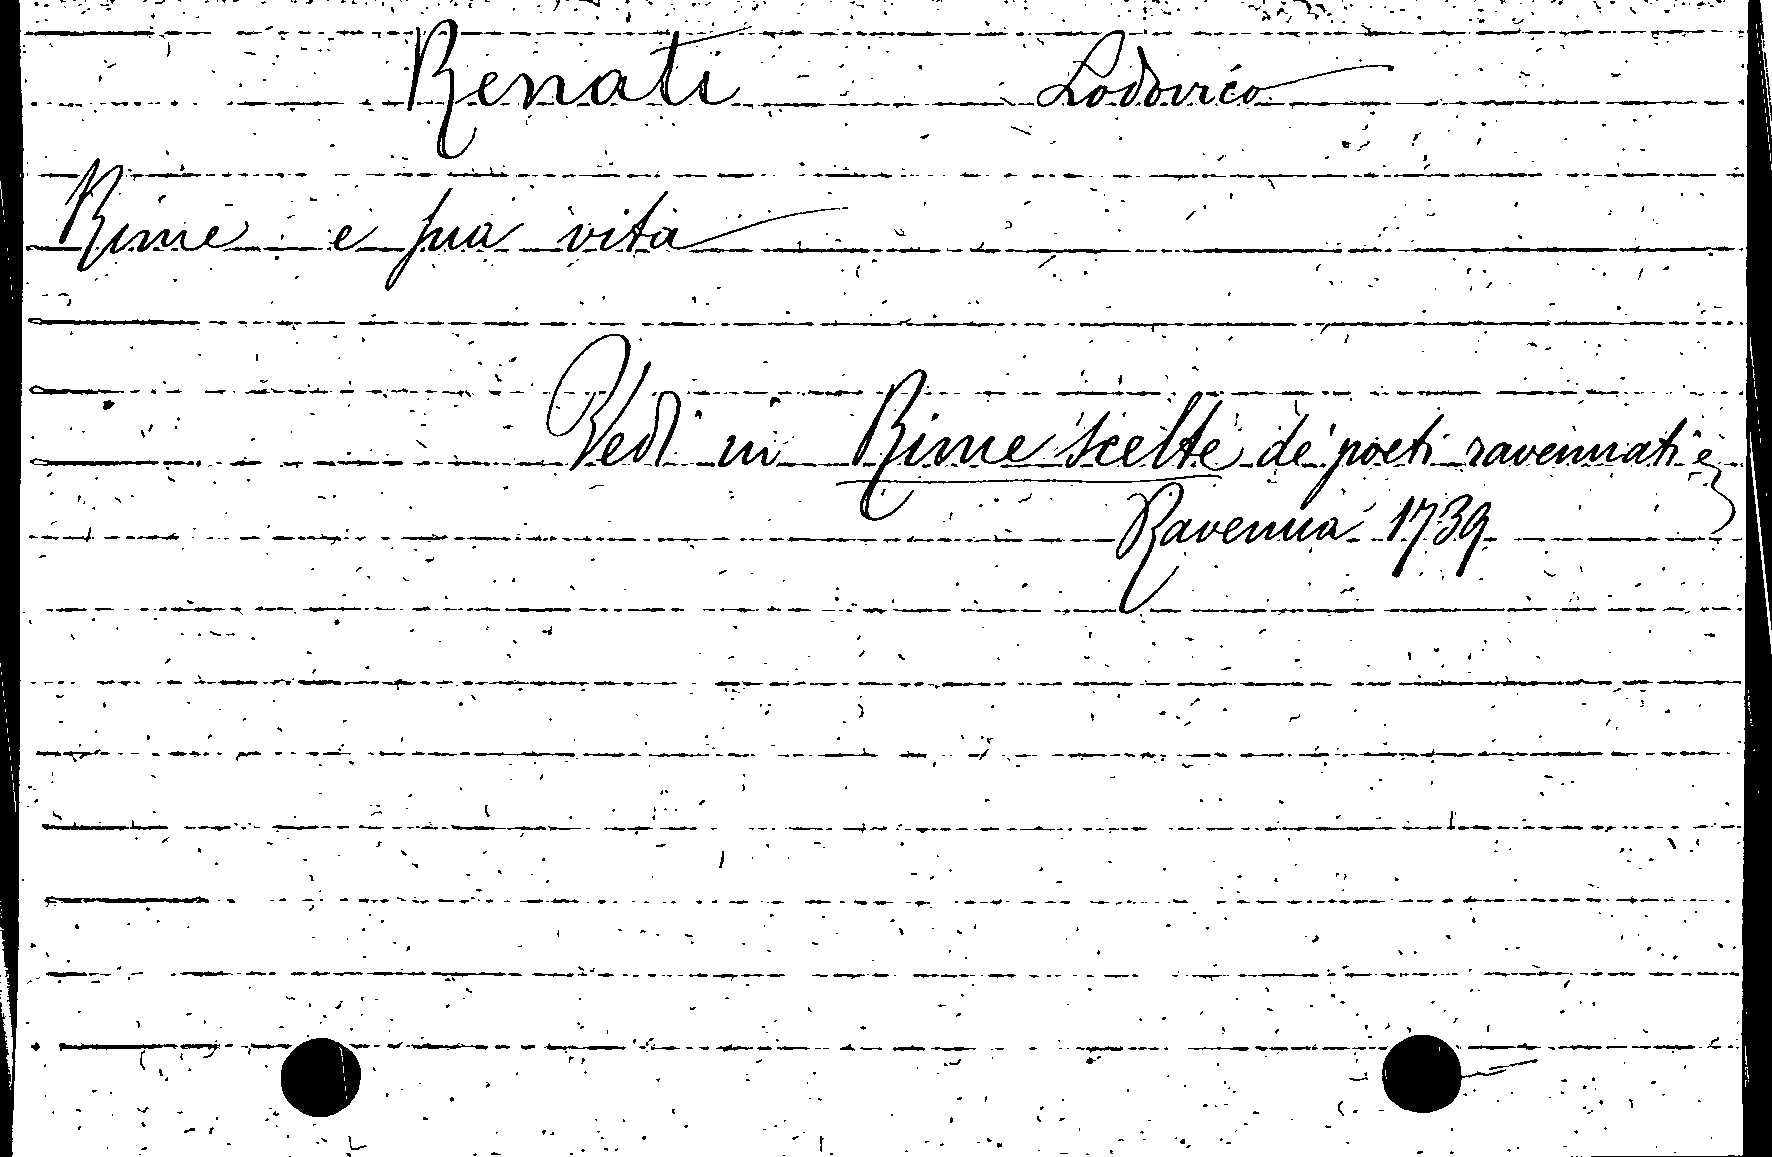 Renati Lodovico
Rime e sua vita
Vedi in Rime scelte de' poeti ravennati e
Ravenna 1739